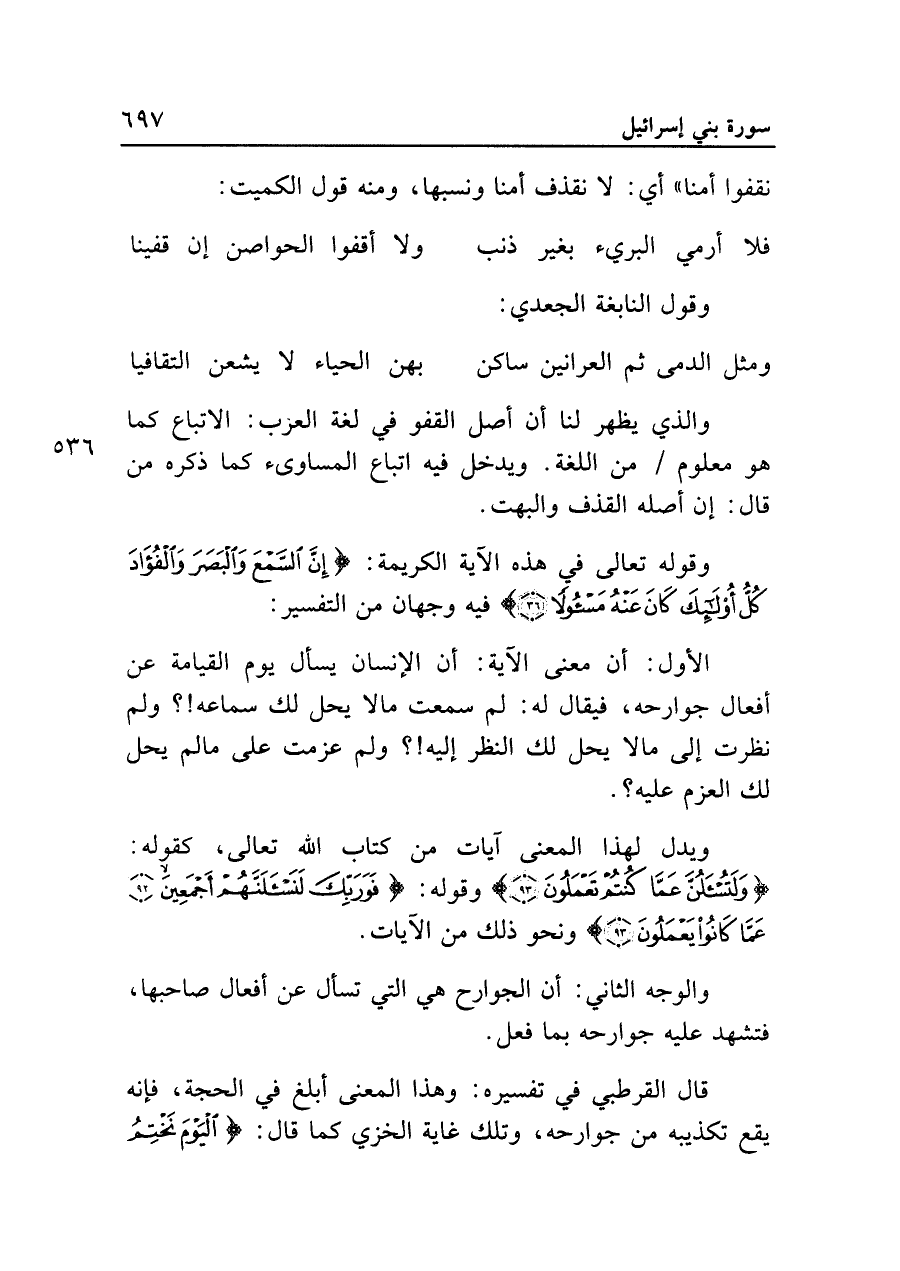 سورة بني إسرائيل ٦٩٧
نقفوا أمنا» أي: لا نقذف أمنا ونسبها، ومنه قول الكميت:
فلا أرمي البريء بغير ذنب ولا أقفوا الحواصن إن قفينا
وقول النابغة الجعدي:
ومثل الدمى ثم العرانين ساكن بهن الحياء لا يشعن التقافيا
والذي يظهر لنا أن أصل القفو في لغة العزب: الاتباع كما
٥٣٦
هو معلوم / من اللغة. ويدخل فيه اتباع المساوىء كما ذكره من
قال: إن أصله القذف والبهت.
وقوله تعالى في هذه الآية الكريمة: ﴿ إِنَّ ٱلسَّمْعَ وَٱلْبَصَرَ وَٱلْفُؤَادَ
كُلُّ أُوْلَٰٓئِكَ كَانَ عَنْهُ مَسْـُٔولًا ٣٦ ﴾ فيه وجهان من التفسير:
الأول: أن معنى الآية: أن الإنسان يسأل يوم القيامة عن
أفعال جوارحه، فيقال له: لم سمعت مالا يحل لك سماعه!؟ ولم
نظرت إلى مالا يحل لك النظر إليه!؟ ولم عزمت على مالم يحل
لك العزم عليه؟.
ويدل لهذا المعنى آيات من كتاب الله تعالى، كقوله:
﴿ وَلَتُسْـَٔلُنَّ عَمَّا كُنتُمْ تَعْمَلُونَ ٩٣ ﴾ وقوله: ﴿ فَوَرَبِّكَ لَنَسْـَٔلَنَّهُمْ أَجْمَعِينَ ٩٢
عَمَّا كَانُوا۟ يَعْمَلُونَ ٩٣ ﴾ ونحو ذلك من الآيات.
والوجه الثاني: أن الجوارح هي التي تسأل عن أفعال صاحبها،
فتشهد عليه جوارحه بما فعل.
قال القرطبي في تفسيره: وهذا المعنى أبلغ في الحجة، فإنه
يقع تكذيبه من جوارحه، وتلك غاية الخزي كما قال: ﴿ ٱلْيَوْمَ نَخْتِمُ